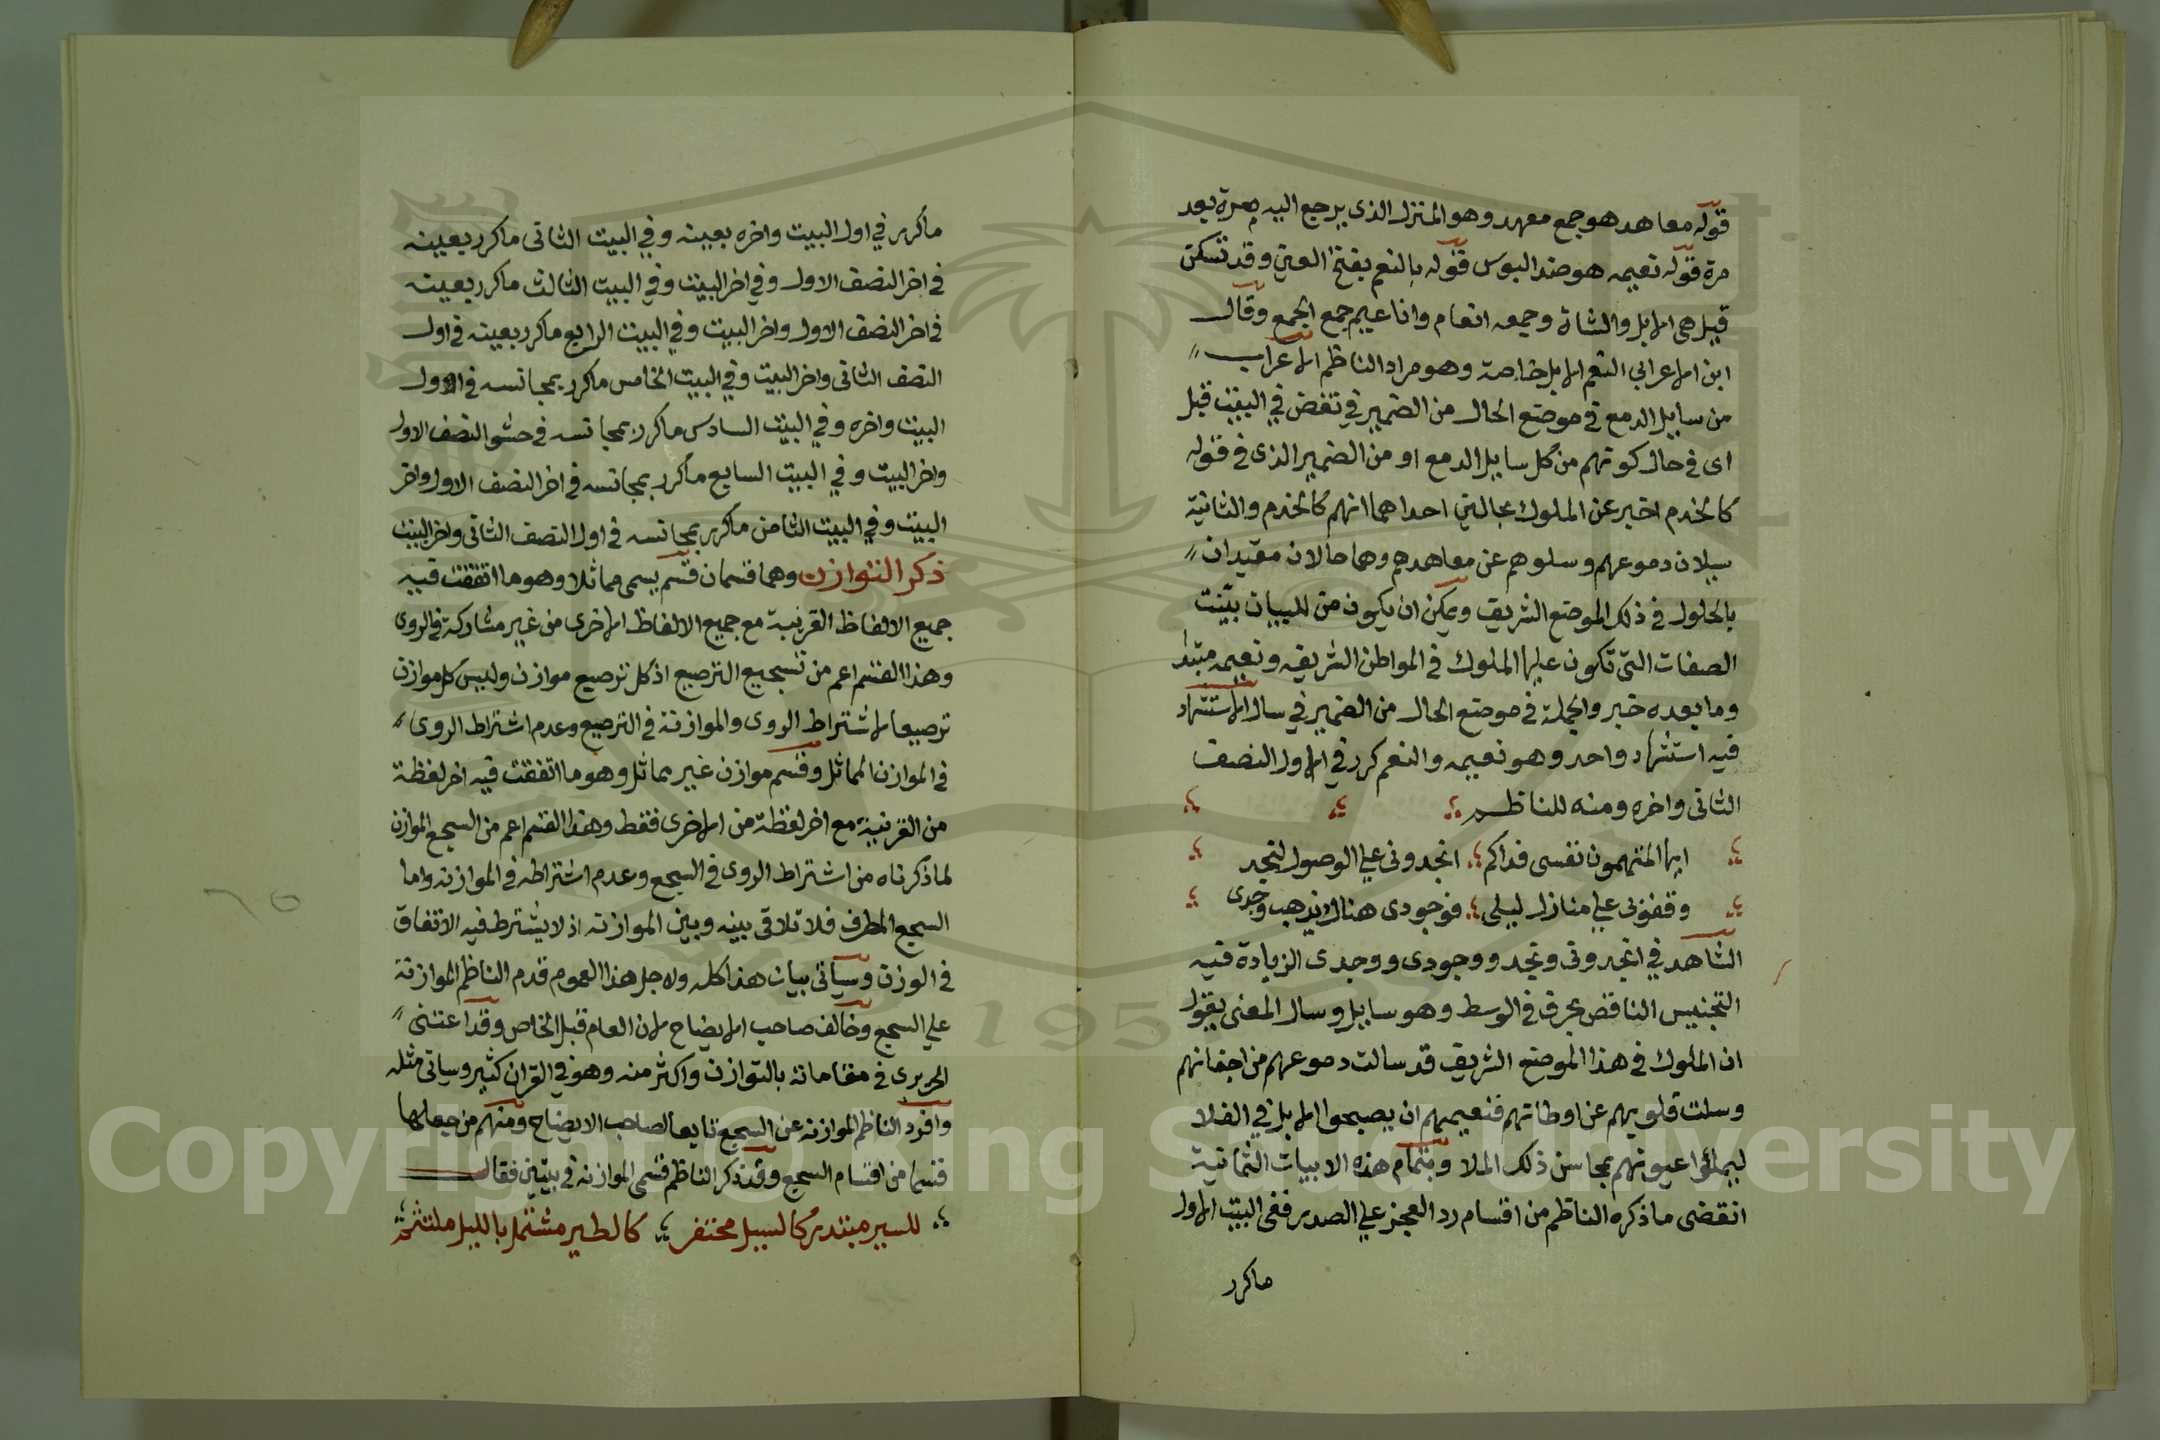 قوله معاهد هو جمع معهد وهو المنزل الذى يرجع اليه مرة بعد
مرة قوله نعيمه هو ضد البوس قوله بالنعم بفتح العين وقد تسكن
قيل هى الابل والشاة وجمعه انعام واناعيم جمع الجمع وقال
ابن الاعرابى النعم الابل خاصة وهو مراد الناظم الاعراب
من سايل الدمع فى موضع الحال من الضمير فى تغض فى البيت قبل
اى فى حال كونهم من كل سايل الدمع او من الضمير الذى فى قوله
كالخدم اخبر عن الملوك بحالتين احداهما انهم كالخدم والثانية
سيلان دموعهم وسلوهم عن معاهدهم وهما حالان مقيدان
بالحلول فى ذلك الموضع الشريف ويمكن ان يكون من للبيان بينت
الصفات التى تكون عليها الملوك فى المواطن الشريفه ونعيمه مبتدا
وما بعده خبر والجملة فى موضع الحال من الضمير فى سال الاستشهاد
فيه استشهاد واحد وهو نعيمه والنعم كرر فى اول النصف
الثانى واخره ومنه للناظم
ايها المتهمون نفسى فداكم انجدونى على الوصول لنجد
وقفونى على منازل ليلى فوجودى هناك يذهب وجدى
الشاهد فى انجدونى ونجد ووجودى ووجدى الزيادة فيه
التجنيس الناقص بحرف فى الوسط وهو سايل وسال المعنى يقول
ان الملوك فى هذا الموضع الشريف قد سالت دموعهم من اجفانهم
وسلت قلوبهم عن اوطانهم فنعيمهم ان يصبحوا الابل فى الفلا
ليملئوا عيونهم بمحاسن ذلك الملا وبتمام هذه الابيات الثمانية
انقضى ما ذكره الناظم من اقسام رد العجز على الصدر ففى البيت الاول
ماكرر
ماكرر فى اول البيت واخره بعينه وفى البيت الثانى ماكرر بعينه
فى اخر النصف الاول وفى اخر البيت وفى البيت الثالث ماكرر بعينه
فى اخر النصف الاول واخر البيت وفى البيت الرابع ماكرر بعينه فى اول
النصف الثانى واخر البيت وفى البيت الخامس ماكرر بمجانسه فى اول
البيت واخره وفى البيت السادس ماكرر بمجانسه فى حشو النصف الاول
واخر البيت وفى البيت السابع ماكرر بمجانسه فى اخر النصف الاول واخر
البيت وفى البيت الثامن ماكرر بمجانسه فى اول النصف الثانى واخر البيت
ذكر التوازن وهما قسمان قسم يسمى مماثلا وهو ما اتفقت فيه
جميع الالفاظ القرينة مع جميع الالفاظ الاخرى من غير مشاركة فى الروى
وهذا القسم اعم من تسجيع الترصيع اذ كل ترصيع موازن وليس كل موازن
ترصيعا لاشتراط الروى والموازنة فى الترصيع وعدم اشتراط الروى
فى الموازن المماثل وقسم موازن غير مماثل وهو ما اتفقت فيه اخر لفظة
من القرينة مع اخر لفظة من الاخرى فقط وهذا القسم اعم من السجع الموازن
لما ذكرناه من اشتراط الروى فى السجع وعدم اشتراطه فى الموازنه واما
السجع المطرف فلا تلاقى بينه وبين الموازنه اذ لا يشترط فيه الاتفاق
فى الوزن وسياتى بيان هذا كله ولاجل هذا العموم قدم الناظم الموازنة
على السجع وخالف صاحب الايضاح لان العام قبل الخاص وقد اعتنى
الحريرى فى مقاماته بالتوازن واكثر منه وهو فى القران كثير وسياتى مثله
وافرد الناظم الموازنه عن السجع تابعا لصاحب الايضاح ومنهم من جعلها
قسما من اقسام السجع وقد ذكر الناظم قسمى الموازنه فى بيتين فقال
للسير مبتدر كالسيل محتفر كالطير مشتمل بالليل ملتثم
1957
Copyright © King Saud University